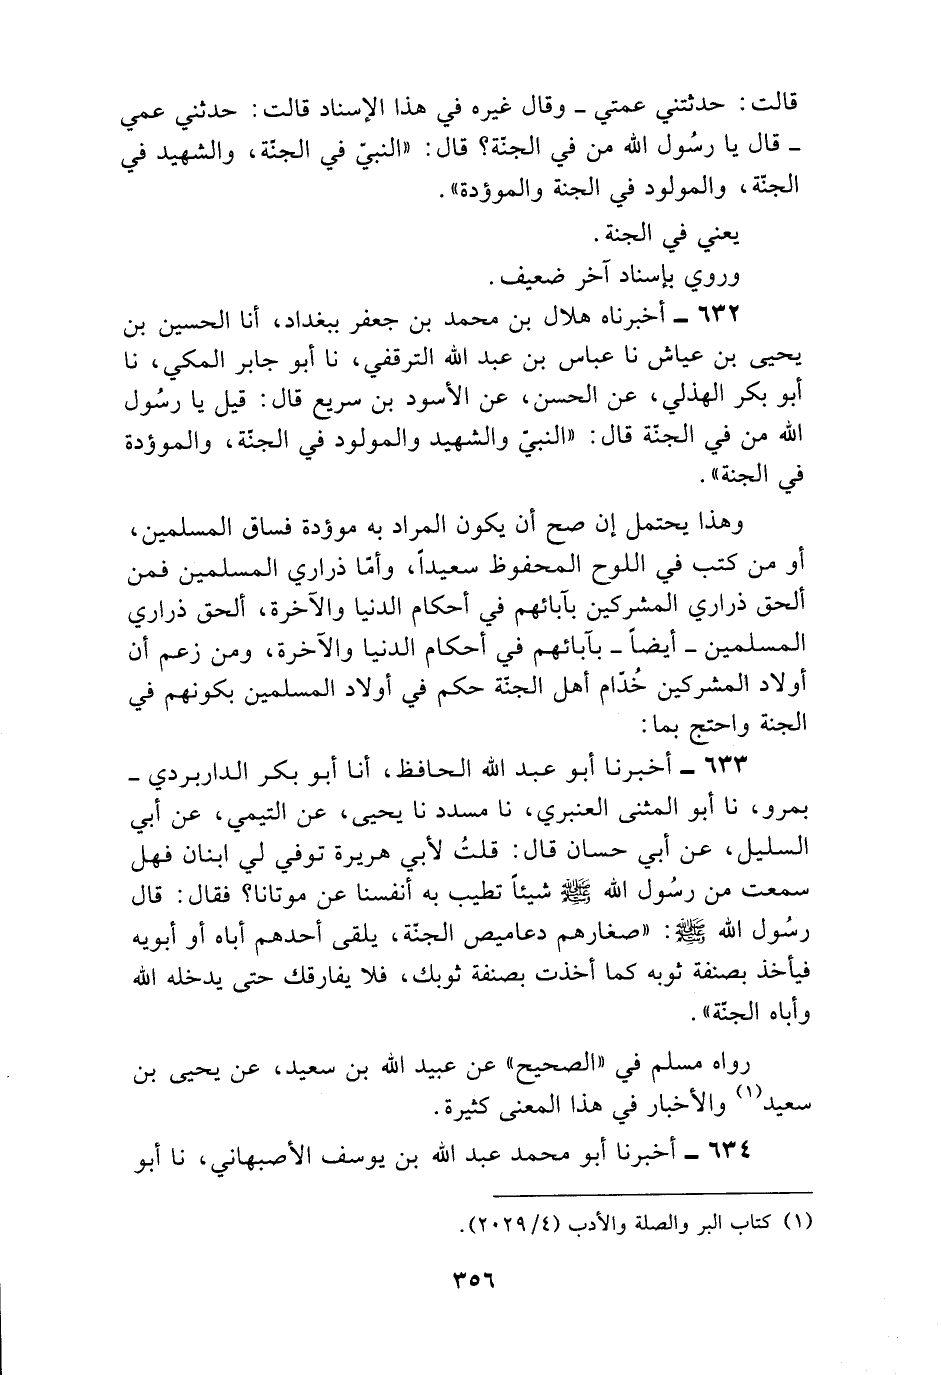 قالت: حدثتني عمتي ـ وقال غيره في هذا الإسناد قالت: حدثني عمي
ـ قال يا رسُول الله من في الجنّة؟ قال: «النبيّ في الجنّة، والشهيد في
الجنّة، والمولود في الجنة والموؤدة».
يعني في الجنة.
وروي بإسناد آخر ضعيف.
٦٣٢ ـ أخبرناه هلال بن محمد بن جعفر ببغداد، أنا الحسين بن
يحيى بن عياش نا عباس بن عبد الله الترقفي، نا أبو جابر المكي، نا
أبو بكر الهذلي، عن الحسن، عن الأسود بن سريع قال: قيل يا رسُول
الله من في الجنّة قال: «النبيّ والشهيد والمولود في الجنّة، والموؤدة
في الجنة».
وهذا يحتمل إن صح أن يكون المراد به موؤدة فساق المسلمين،
أو من كتب في اللوح المحفوظ سعيداً، وأمّا ذراري المسلمين فمن
ألحق ذراري المشركين بآبائهم في أحكام الدنيا والآخرة، ألحق ذراري
المسلمين ـ أيضاً ـ بآبائهم في أحكام الدنيا والآخرة، ومن زعم أن
أولاد المشركين خُدّام أهل الجنّة حكم في أولاد المسلمين بكونهم في
الجنة واحتج بما:
٦٣٣ ـ أخبرنا أبو عبد الله الحافظ، أنا أبو بكر الداربردي ـ
بمرو، نا أبو المثنى العنبري، نا مسدد نا يحيى، عن التيمي، عن أبي
السليل، عن أبي حسان قال: قلتُ لأبي هريرة توفي لي ابنان فهل
سمعت من رسُول الله ﷺ شيئاً تطيب به أنفسنا عن موتانا؟ فقال: قال
رسُول الله ﷺ: «صغارهم دعاميص الجنّة، يلقى أحدهم أباه أو أبويه
فيأخذ بصنفة ثوبه كما أخذت بصنفة ثوبك، فلا يفارقك حتى يدخله الله
وأباه الجنّة».
رواه مسلم في «الصحيح» عن عبيد الله بن سعيد، عن يحيى بن
سعيد(١) والأخبار في هذا المعنى كثيرة.
٦٣٤ ـ أخبرنا أبو محمد عبد الله بن يوسف الأصبهاني، نا أبو
(١) كتاب البر والصلة والأدب (٤/٢٠٢٩).
٣٥٦